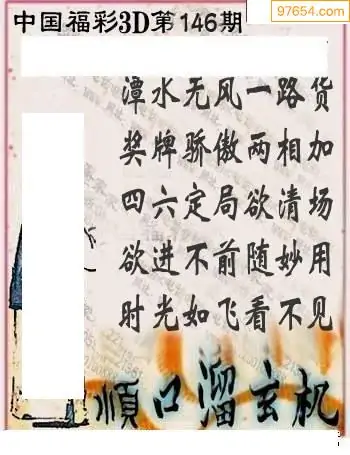 97654.com
中国福彩3D第146期
潭水无风一路货
奖牌骄傲两相加
四六定局欲清场
欲进不前随妙用
时光如飞看不见
顺口溜玄机